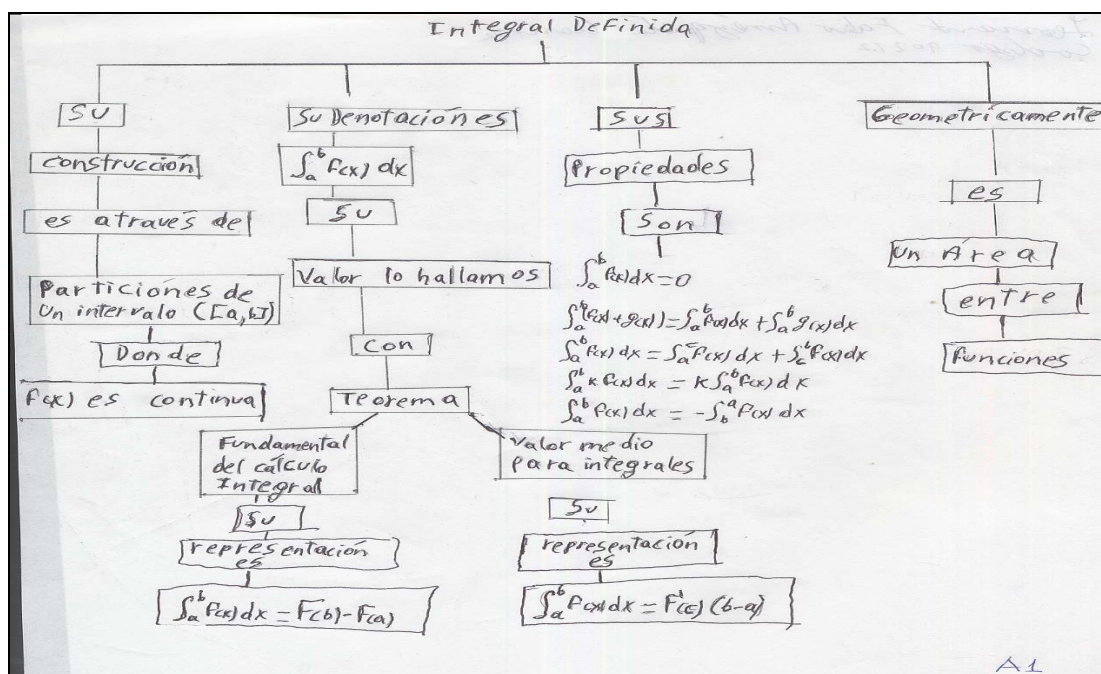 Integral Definida
Su
construcción
es através de
Particiones de
un intervalo ([a,b])
Donde
f(x) es continua
Su Denotación es
∫_a^b f(x) dx
Su
Valor lo hallamos
con
Teorema
Fundamental
del cálculo
Integral
Su
representación
es
∫_a^b f(x) dx = F(b) - F(a)
Valor medio
para integrales
Su
representación
es
∫_a^b f(x) dx = F'(c) (b-a)
Sus
Propiedades
Son
∫_a^b f(x) dx = 0
∫_a^b (f(x) + g(x)) = ∫_a^b f(x) dx + ∫_a^b g(x) dx
∫_a^b f(x) dx = ∫_a^c f(x) dx + ∫_c^b f(x) dx
∫_a^b k f(x) dx = k ∫_a^b f(x) dx
∫_a^b f(x) dx = -∫_b^a f(x) dx
Geometrícamente
es
un Área
entre
funciones
A1